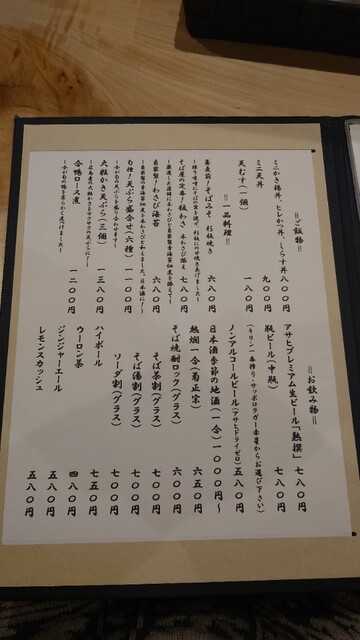 ＝ご飯物＝
ミニかき揚丼、ヒレかつ丼、しらす丼 八〇〇円
ミニ天丼 九〇〇円
天むす（一個） 一八〇円
＝一品料理＝
蕎麦前！そばみそ 杉板焼き 六八〇円
そば屋の定番！板わさ 本わさび添え 七八〇円
自家製！わさび海苔 六八〇円
旬種！天ぷら盛合せ（六種） 一一〇〇円
〜今が旬の天ぷらを盛り合わせます〜
大粒かき天ぷら（三個） 一三八〇円
〜広島産の大粒かきをサクサクの天ぷらに！〜
合鴨ロース煮 一二〇〇円
〜今が旬の鴨を柔らかく煮つけました〜
＝お飲み物＝
アサヒプレミアム生ビール「熟撰」 七八〇円
瓶ビール（中瓶） 七八〇円
（キリン一番搾り・サッポロラガー赤星からお選び下さい）
ノンアルコールビール（アサヒドライゼロ） 五八〇円
日本酒季節の地酒（一合） 一〇〇〇円〜
熱燗一合（菊正宗） 六五〇円
そば焼酎ロック（グラス） 六〇〇円
そば茶割（グラス） 七〇〇円
そば湯割（グラス） 七〇〇円
ソーダ割（グラス） 七〇〇円
ハイボール 七五〇円
ウーロン茶 四八〇円
ジンジャーエール 五八〇円
レモンスカッシュ 五八〇円